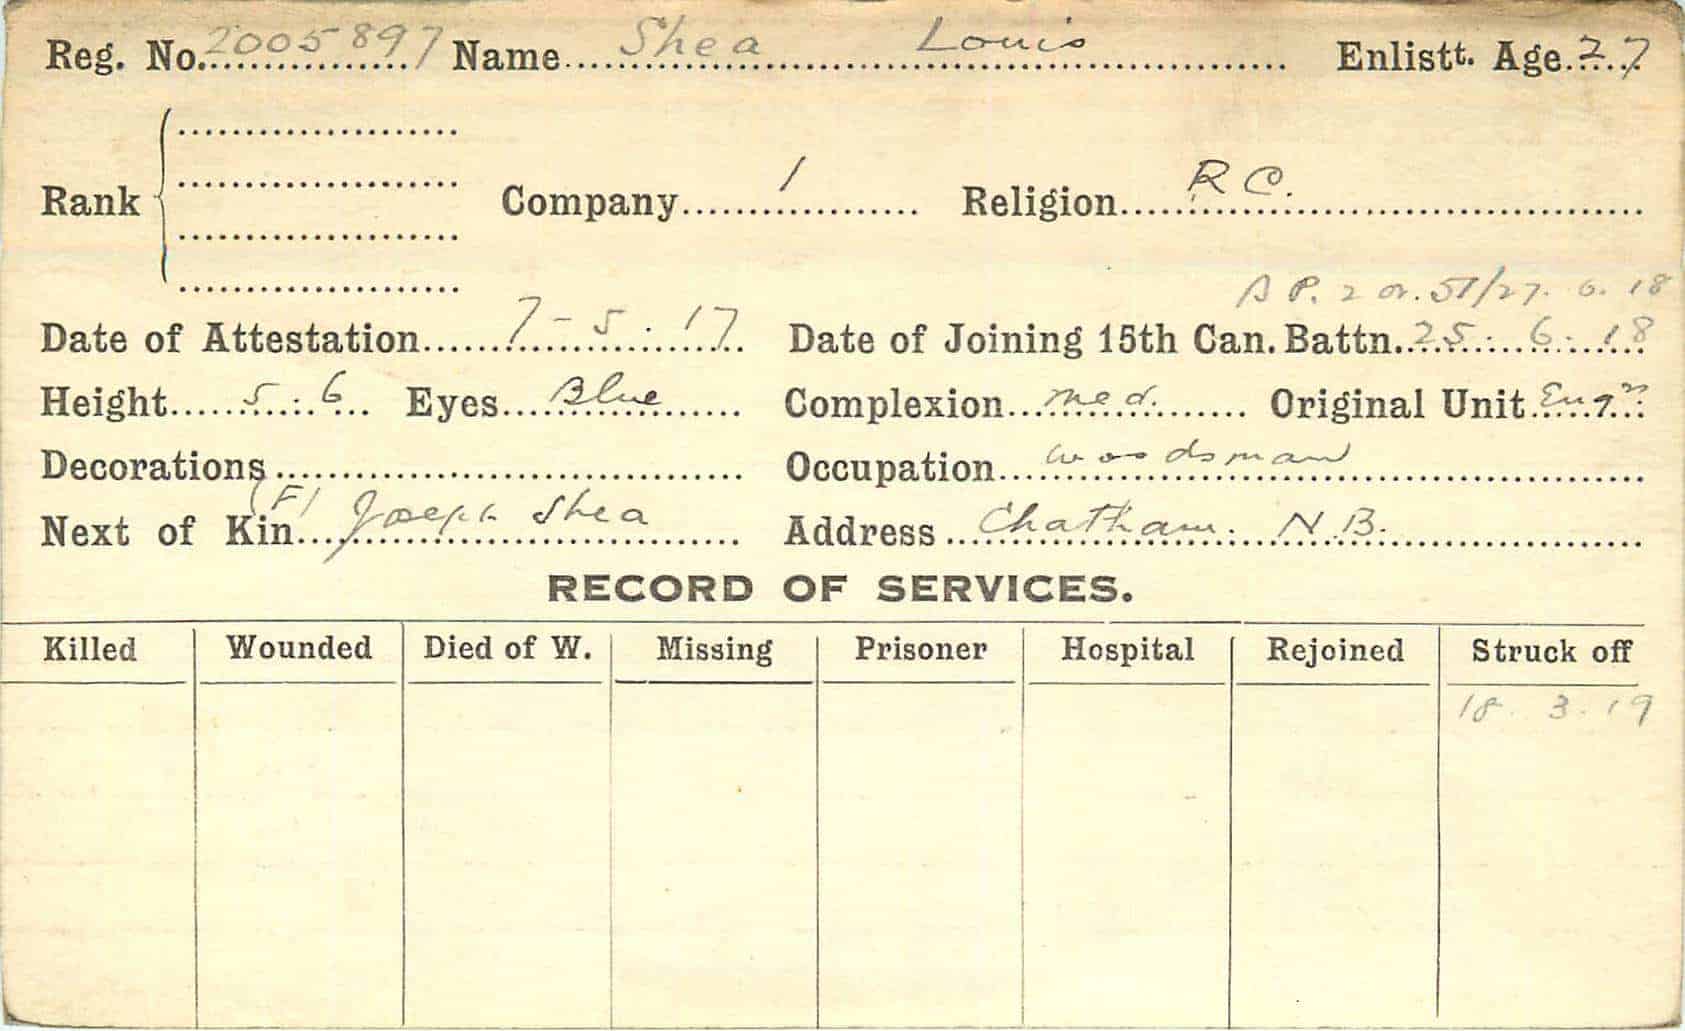 Reg. No. 2005897 Name Shea Louis Enlistt. Age. 27
Rank Company 1 Religion R C.
2 or. 51/27. 6. 18
Date of Attestation 7-5.17 Date of Joining 15th Can. Battn. 25. 6. 18
Height 5.6 Eyes Blue Complexion med. Original Unit Engrs
Decorations Occupation woodsman
Next of Kin (F) Joseph Shea Address Chatham. N.B.
RECORD OF SERVICES.
Killed Wounded Died of W. Missing Prisoner Hospital Rejoined Struck off
18. 3. 19